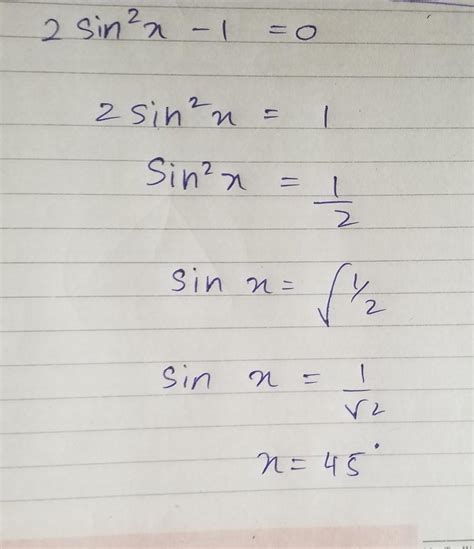 2 sin²x - 1 = 0
2 sin²x = 1
Sin²x = 1/2
sin x = √1/2
sin x = 1/√2
x = 45°